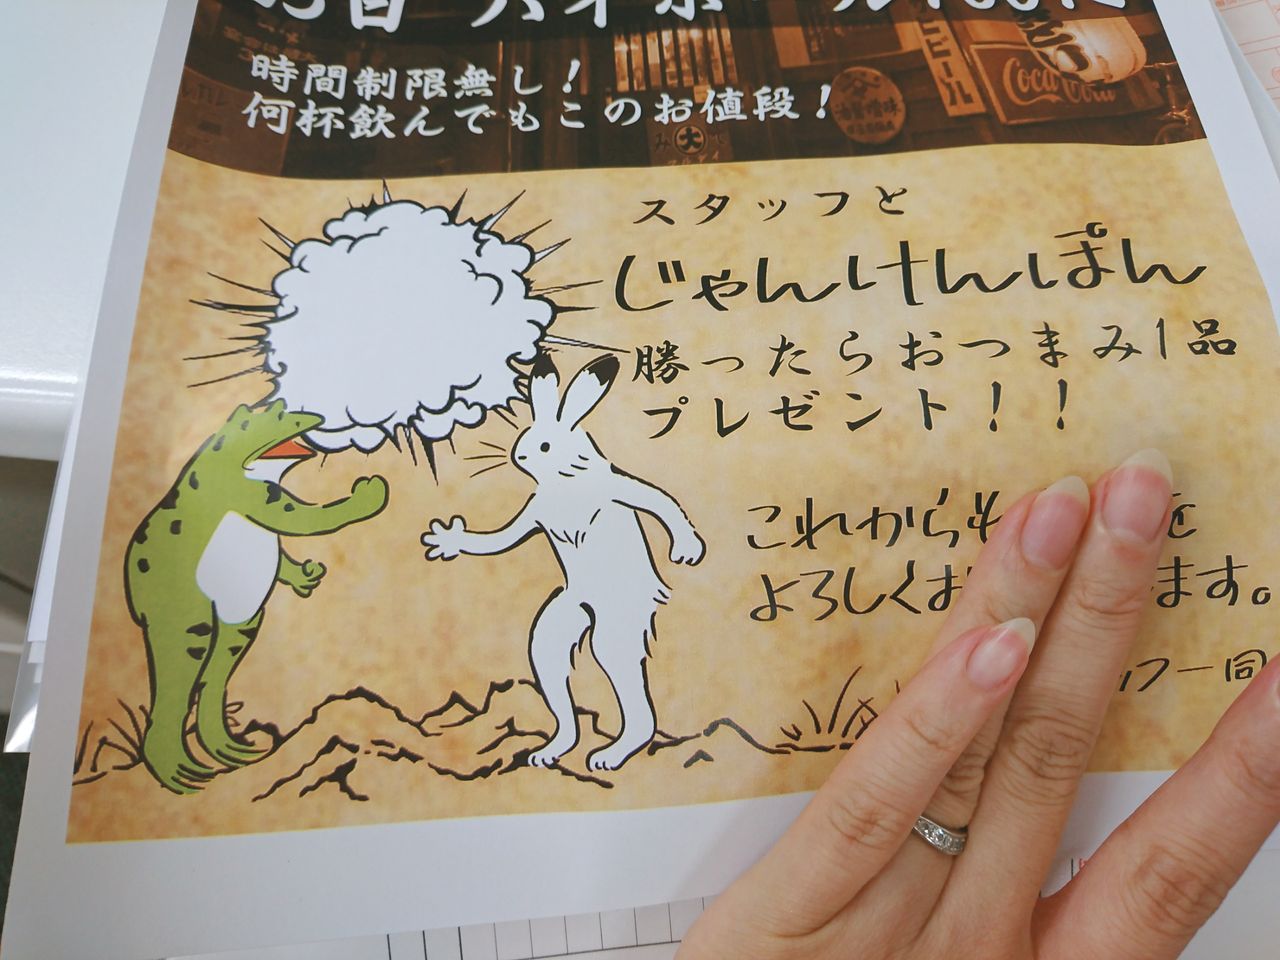 時間制限無し!
何杯飲んでもこのお値段!
Coca Cola
大
スタッフと
じゃんけんぽん
勝ったらおつまみ1品
プレゼント!!
これからも
よろしくお ます。
フ一同